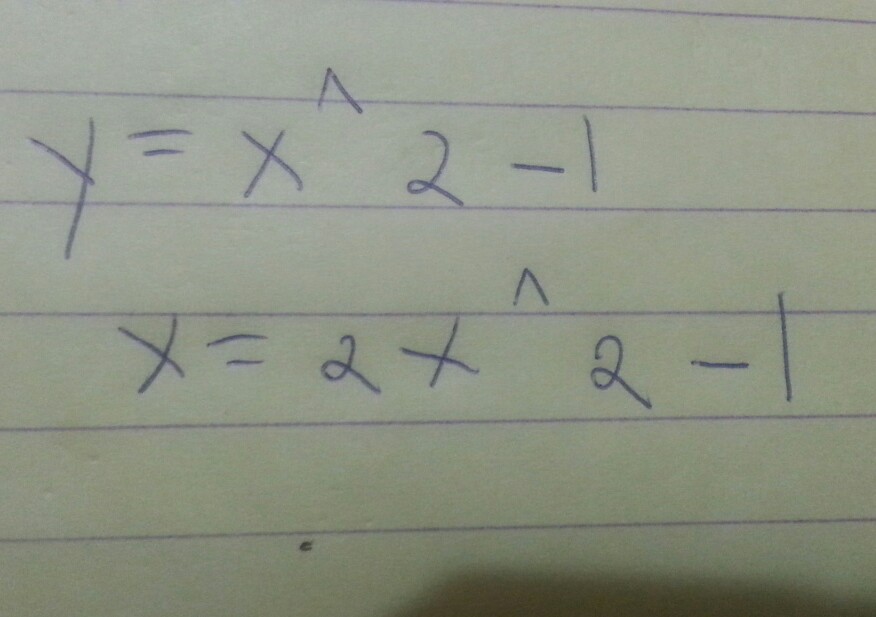 y = x ^ 2 - 1
x = 2x ^ 2 - 1